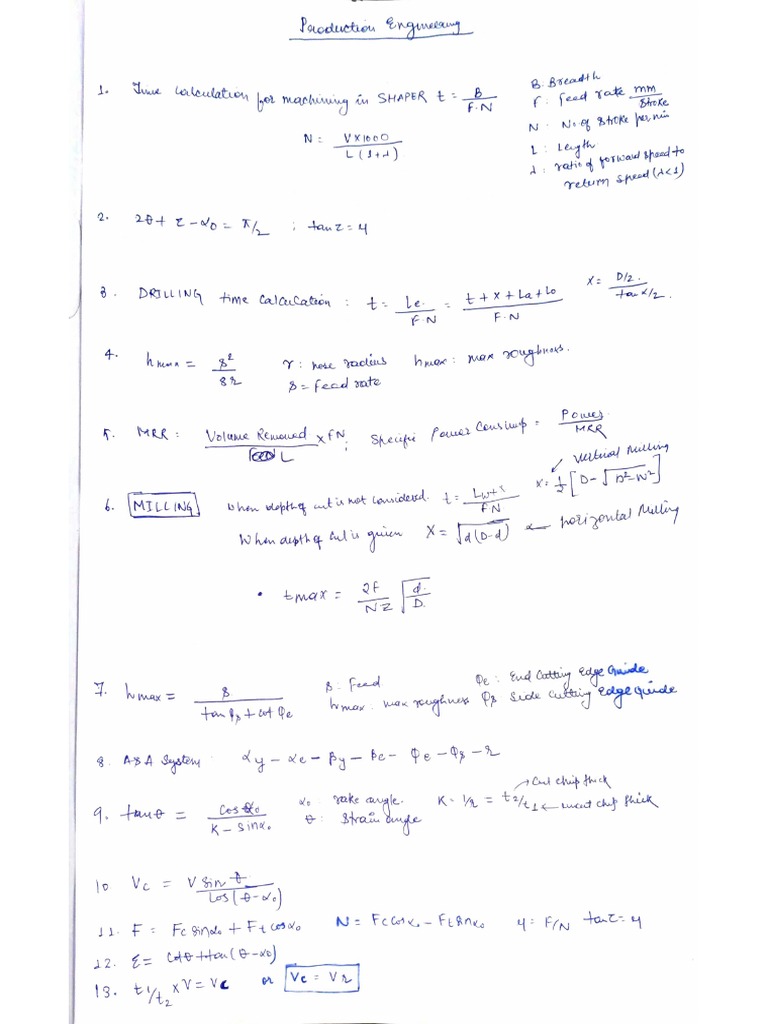 Production Engineering
1. Time Calculation for machining in SHAPER t = B / F.N
N = V×1000 / L(1+λ)
B. Breadth
F. Feed rate mm/stroke
N. No of stroke per min
L: Length
λ: ratio of forward speed to
return speed (λ<1)
2. 2θ + τ - α0 = π/2 ; tanτ = 4
3. DRILLING time Calculation : t = Le / F.N = t + x + La + Lo / F.N x = D/2 / tan α/2
4. hmax = s² / 8r r: nose radius hmax: max roughness.
s = feed rate
5. MRR: Volume Removed / L × FN ; Specific Power Consump = Power / MRR
6. MILLING When depth of cut is not considered. t = Lw+x / FN x = 1/2 [D - √D²-W²] ← Vertical Milling
When depth of cut is given X = √d(D-d) ← horizontal Milling
• tmax = 2f / NZ √d/D
7. hmax = s / tan φs + cot φe s: Feed φe: End Cutting edge Guide
hmax: max roughness φs Side Cutting Edge Guide
8. ASA System: αy - αe - βy - βe - φe - φs - r
9. tanθ = cosα0 / K - sinα0 α0: rake angle. K = 1/r = t2/t1 → Cut chip thick
θ: Strain angle ← uncut chip thick
10 Vc = V sin θ / Cos(θ-α0)
11. F = Fc sinα0 + Ft cosα0 N = Fc cosα0 - Ft sinα0 4 = F/N tanτ = 4
12. ε = cotθ + tan(θ-α0)
13. t1/t2 × V = Vc or Vc = Vr